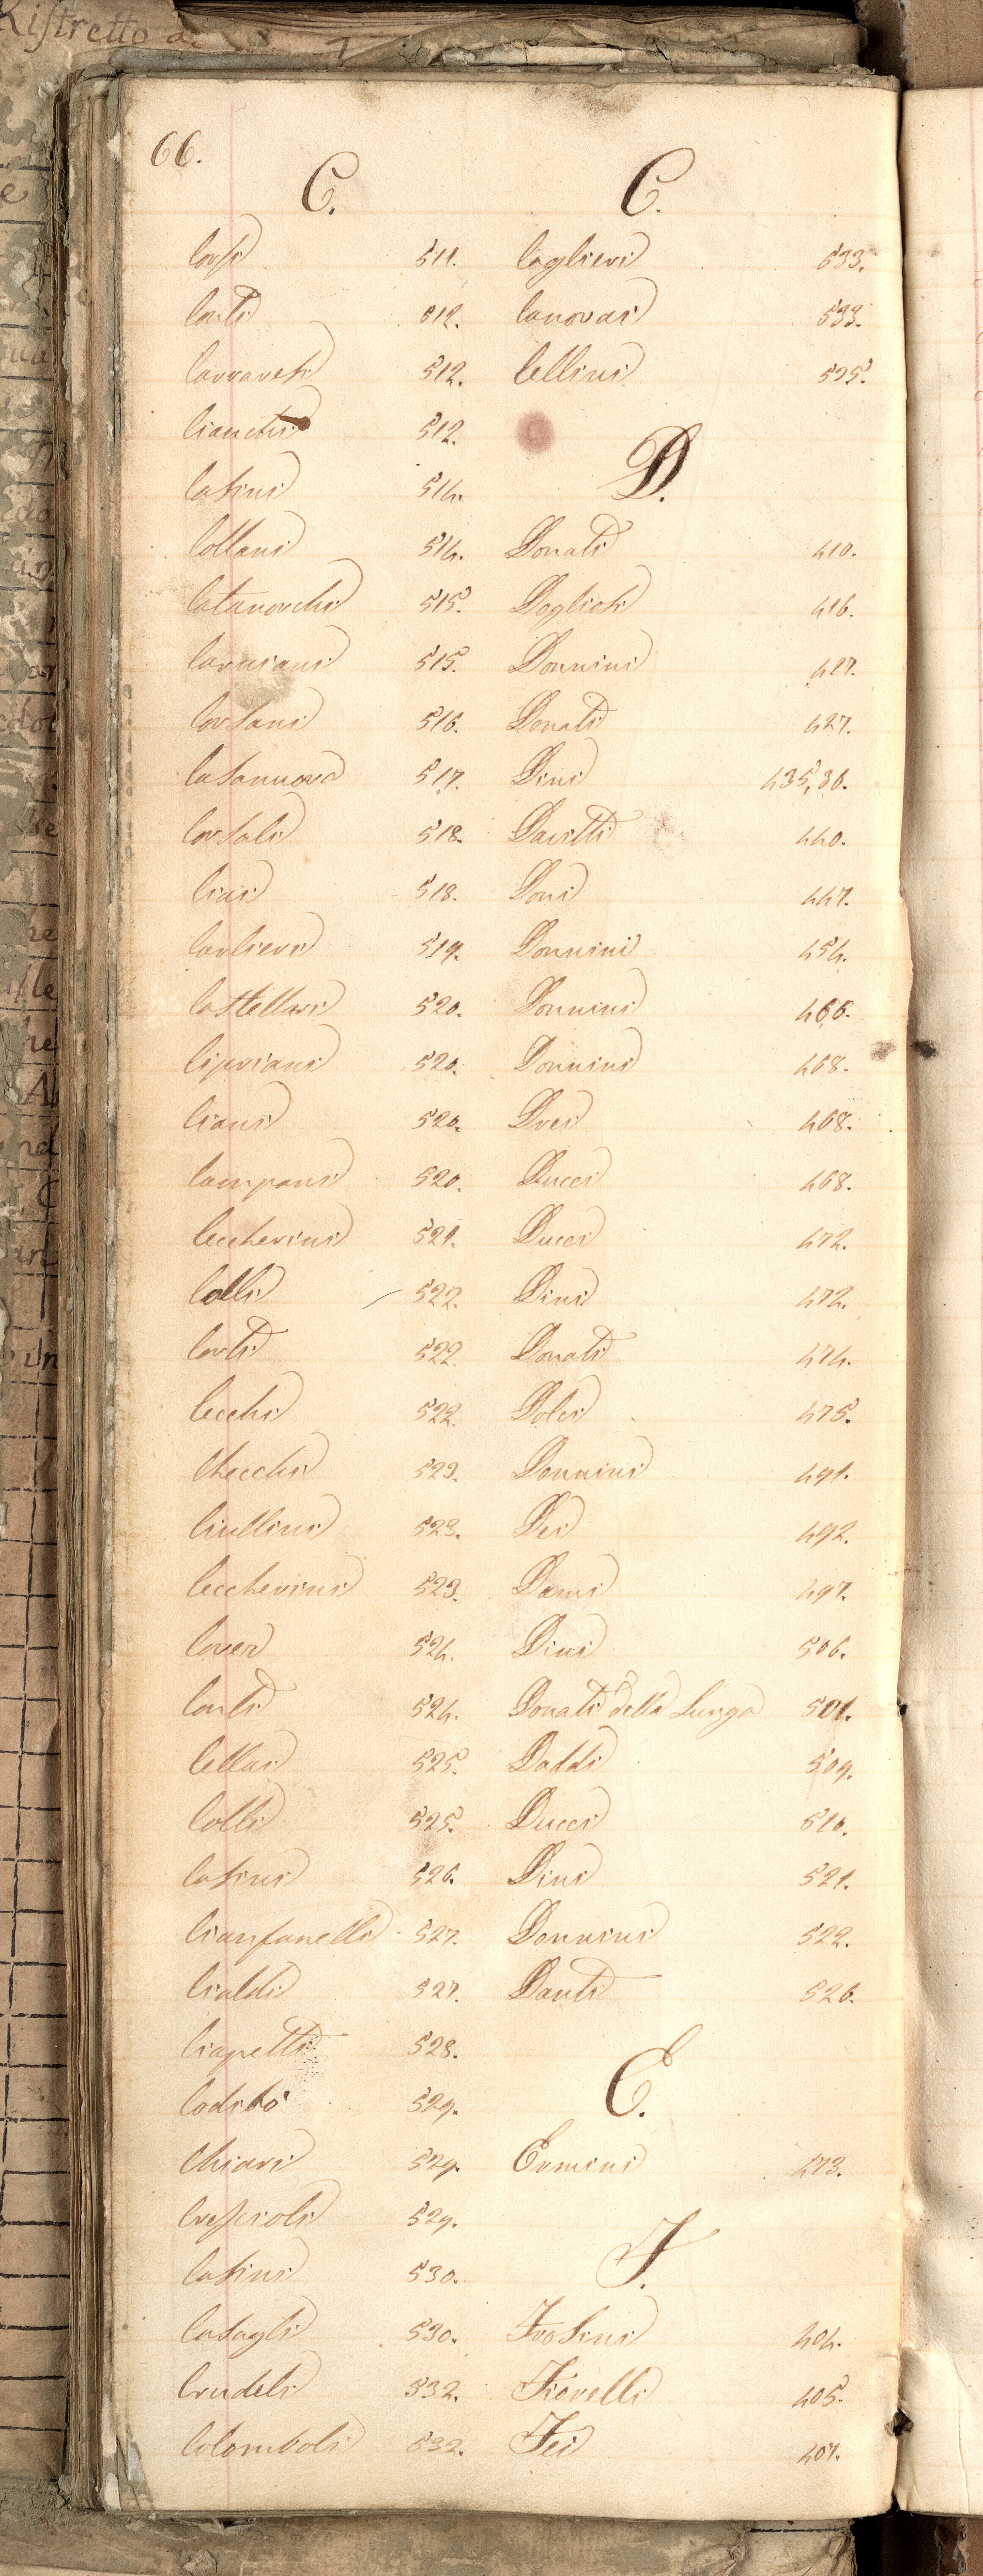 Ristretto de
66.
C.
Corsi 511.
Conti 512.
Carraresi 512.
Cianchi 512.
Casini 514.
Collani 514.
Catanorchi 515.
Carniani 515.
Corsani 516.
Casanuova 517.
Corsali 518.
Ciai 518.
Cavlieri 519.
Castellari 520.
Cipriani 520.
Ciani 520.
Campani 520.
Ceccherini 521.
Colli 522.
Corti 522.
Cecchi 522.
Checchi 523.
Ciullini 523.
Ceccherini 523.
Coveri 524.
Conti 524.
Cellai 525.
Colli 525.
Casini 526.
Cianfanelli 527.
Cialdi 527.
Ciapetti 528.
Codibò 529.
Chiari 529.
Crescioli 529.
Casini 530.
Casagli 530.
Crudeli 532.
Colomboli 532.
C.
Caglieri 533.
Canovai 533.
Cellini 535.
D.
Donati 410.
Dogliosi 416.
Donnini 427.
Donati 427.
Dini 435,36.
Davitti 440.
Doni 447.
Donnini 454.
Donnini 466.
Donnini 468.
Drei 468.
Ducci 468.
Ducci 472.
Dini 472.
Donati 474.
Dolci 475.
Donnini 491.
Dei 492.
Dami 497.
Dini 506.
Donati della Lunga 501.
Daddi 509.
Ducci 510.
Dini 521.
Donnini 522.
Danti 526.
E.
Ermini 473.
F.
Frosini 404.
Fiorelli 405.
Fei 407.